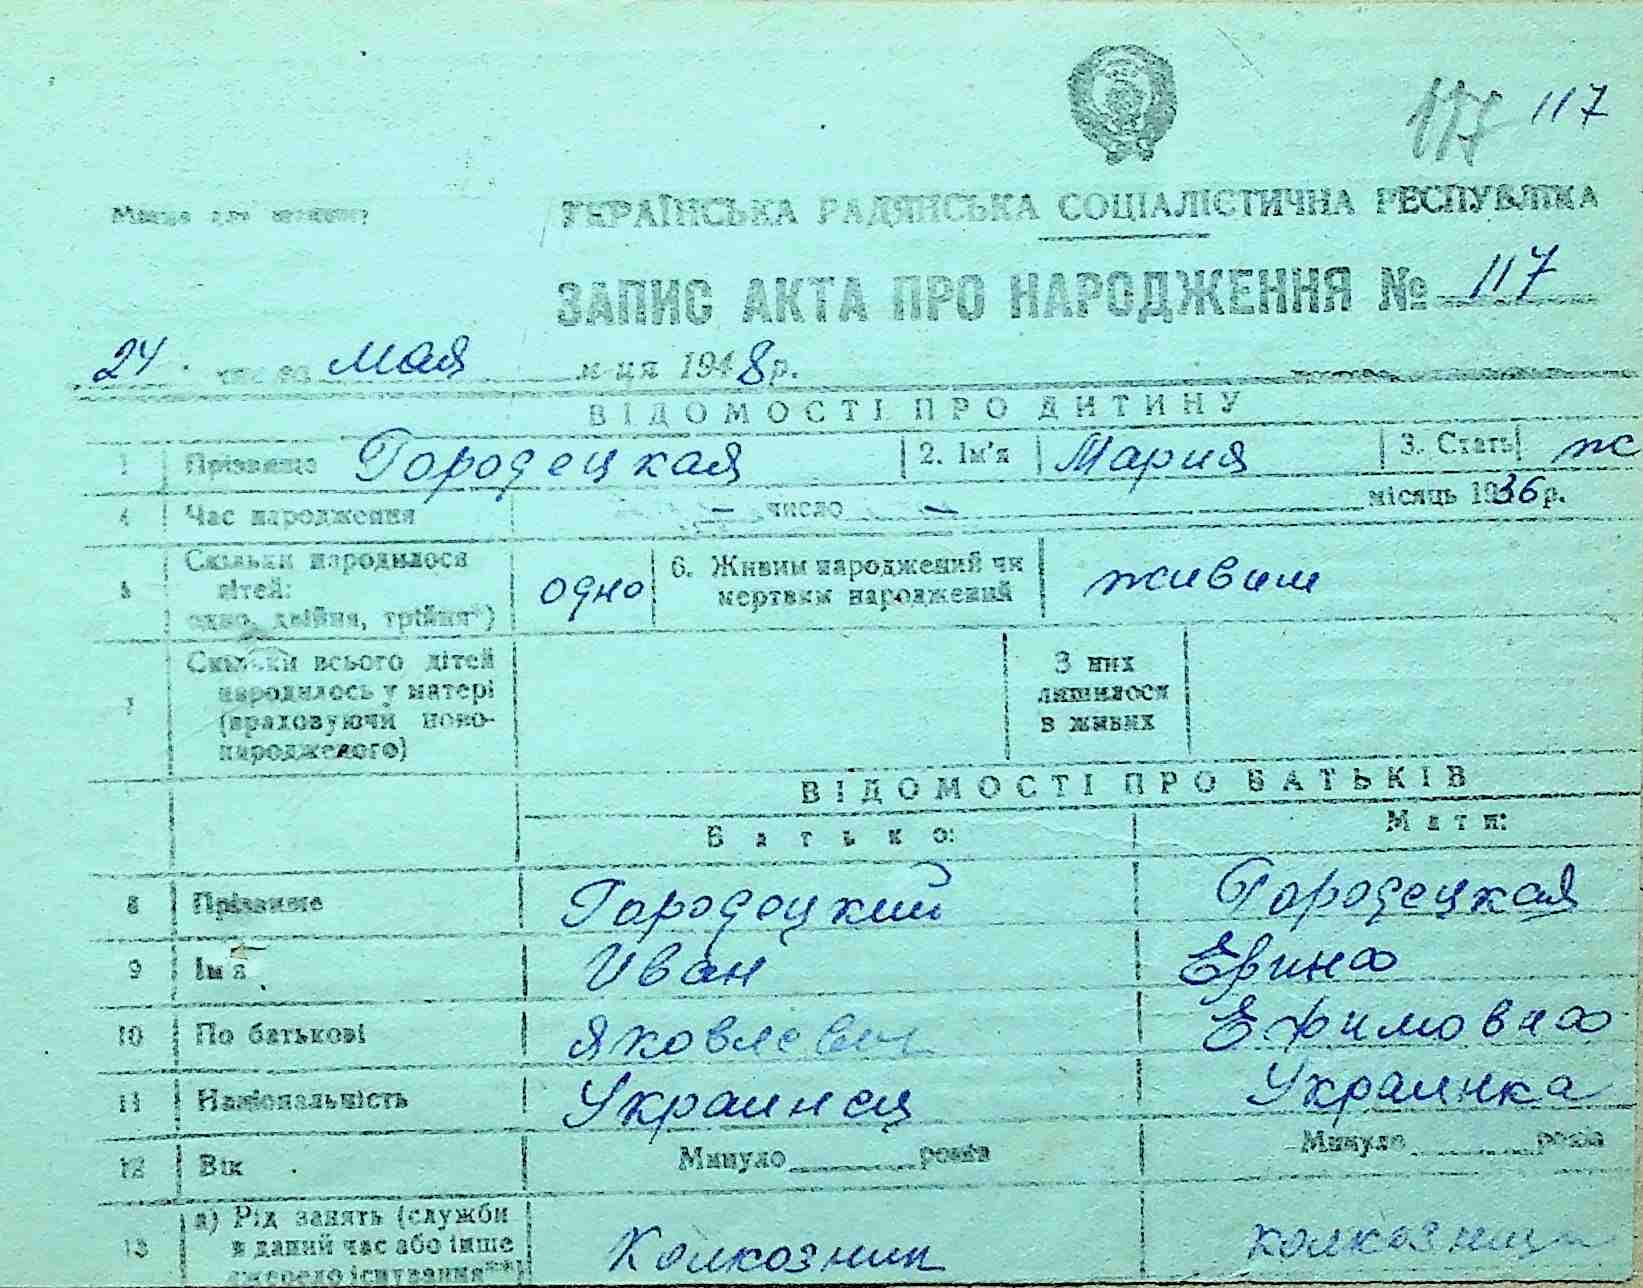 117 117
Місце для штампу
УКРАЇНСЬКА РАДЯНСЬКА СОЦІАЛІСТИЧНА РЕСПУБЛІКА
ЗАПИС АКТА ПРО НАРОДЖЕННЯ № 117
24 числа мая м-ця 1948 р.
ВІДОМОСТІ ПРО ДИТИНУ
1 Прізвище Городецкая 2. Ім'я Мария 3. Стать ж
4 Час народження — число — місяць 1936 р.
5 Скільки народилося дітей: одно, двійня, трійня*) одно 6. Живим народжений чи мертвим народжений живым
7 Скільки всього дітей народилось у матері (враховуючи ново-народженого) З них лишилося в живих
ВІДОМОСТІ ПРО БАТЬКІВ
Батько: Мати:
8 Прізвище Городецкий Городецкая
9 Ім'я Иван Ерина
10 По батькові Яковлевич Ефимовна
11 Національність Украинец Украинка
12 Вік Минуло років Минуло років
13 а) Рід занять (служби в даний час або інше джерело існування**) Колхозник колхозница